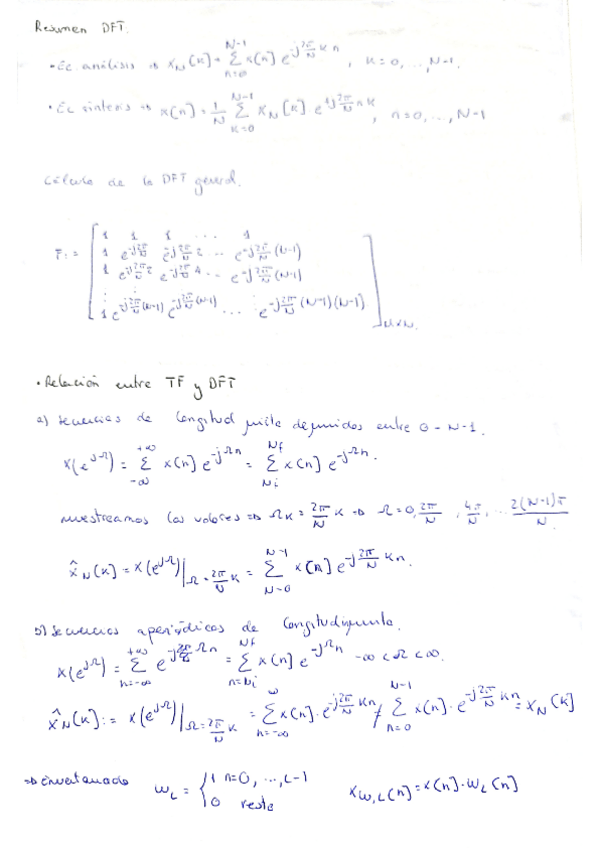 Resumen DFT.
• Ec análisis ⇒ X_N[k] = Σ_{n=0}^{N-1} x(n) e^{-j 2π/N kn}, k=0,...,N-1.
• Ec síntesis ⇒ x(n) = 1/N Σ_{k=0}^{N-1} X_N[k] e^{j 2π/N nk}, n=0,...,N-1
Cálculo de la DFT general.
1 1 1 ... 1
1 e^{-j 2π/N} e^{-j 2π/N 2} ... e^{-j 2π/N (N-1)}
F:= 1 e^{-j 2π/N 2} e^{-j 2π/N 4} ... e^{-j 2π/N (N-1)}
⋮ ⋮ ⋮
1 e^{-j 2π/N (N-1)} e^{-j 2π/N (N-1)} ... e^{-j 2π/N (N-1)(N-1)} NxN.
• Relación entre TF y DFT
a) Secuencias de longitud finita definidas entre 0 - N-1.
X(e^{jΩ}) = Σ_{-∞}^{+∞} x(n) e^{-jΩn} = Σ_{Ni}^{Nf} x(n) e^{-jΩn}.
muestreamos los valores ⇒ Ωk = 2π/N k ⇒ Ω = 0, 2π/N, 4π/N, ... 2(N-1)π/N
X̂_N[k] = X(e^{jΩ})|_{Ω = 2π/N k} = Σ_{N=0}^{N-1} x(n) e^{-j 2π/N kn}.
b) Secuencias aperiódicas de longitud
X(e^{jΩ}) = Σ_{n=-∞}^{+∞} e^{-j Ωn} = Σ_{n=Ni}^{Nf} x(n) e^{-jΩn} -∞ < Ω < ∞.
X̂_N[k] := X(e^{jΩ})|_{Ω = 2π/N k} = Σ_{n=-∞}^{∞} x(n)·e^{-j 2π/N kn} ≠ Σ_{n=0}^{N-1} x(n)·e^{-j 2π/N kn} = X_N[k]
⇒ enventanado w_L = { 1 n=0, ..., L-1 x_{w,L}(n) = x(n)·w_L(n)
0 resto